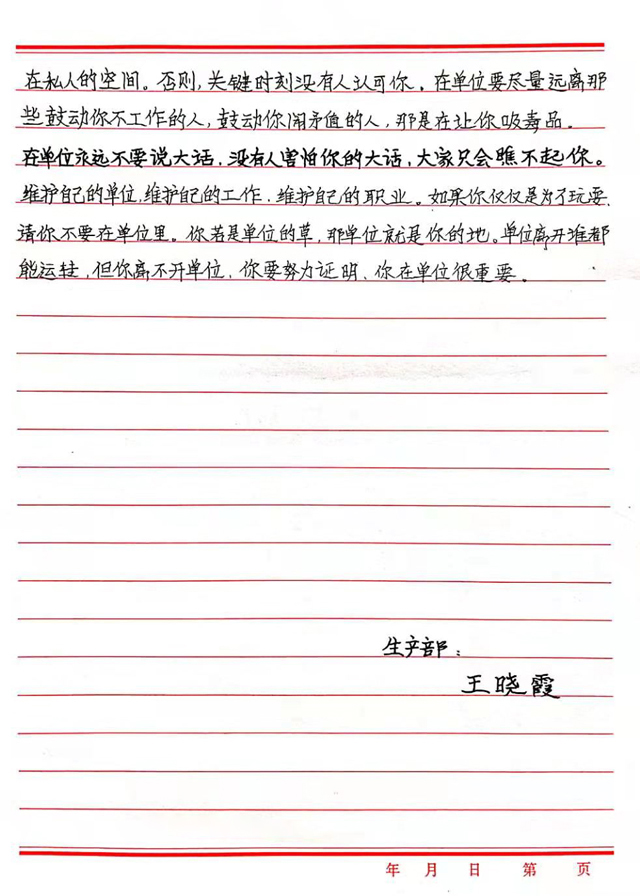 在私人的空间。否则,关键时刻没有人认可你。在单位要尽量远离那
些鼓动你不工作的人,鼓动你闹矛盾的人,那是在让你吸毒品。
在单位永远不要说大话,没有人害怕你的大话,大家只会瞧不起你。
维护自己的单位,维护自己的工作,维护自己的职业。如果你仅仅是为了玩耍,
请你不要在单位里。你若是单位的草,那单位就是你的地。单位离开谁都
能运转,但你离不开单位,你要努力证明,你在单位很重要。
生产部:
王晓霞
年 月 日 第 页